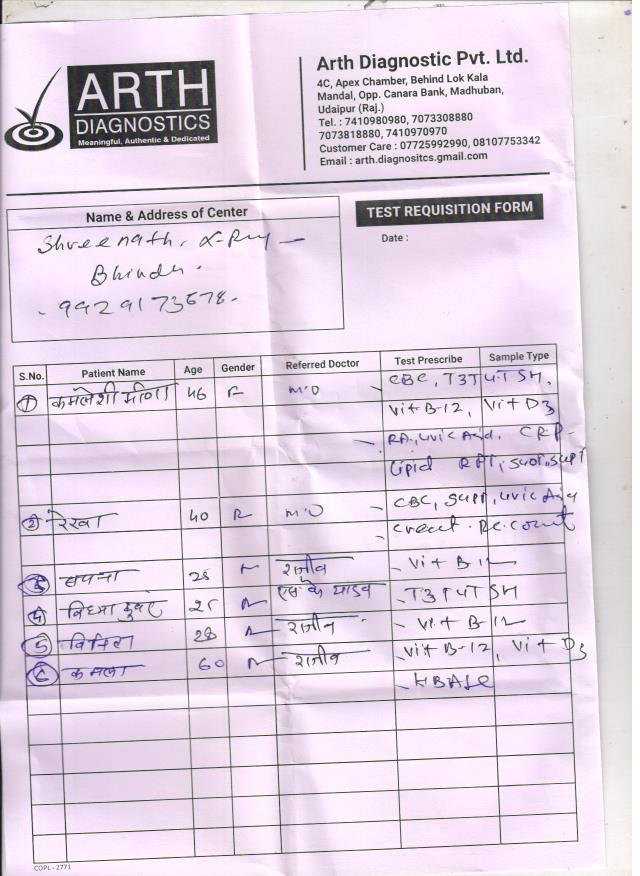 ARTH
DIAGNOSTICS
Meaningful, Authentic & Dedicated
Arth Diagnostic Pvt. Ltd.
4C, Apex Chamber, Behind Lok Kala
Mandal, Opp. Canara Bank, Madhuban,
Udaipur (Raj.)
Tel. : 7410980980, 7073308880
7073818880, 7410970970
Customer Care : 07725992990, 08107753342
Email : arth.diagnositcs.gmail.com
Name & Address of Center
Shreenath. X-Ray
Bhinder.
TEST REQUISITION FORM
Date :
S.No. Patient Name Age Gender Referred Doctor Test Prescribe Sample Type
1 कमलेशी मीणा 46 M.O CBC, T3T4TSH.
Vit B-12, Vit D3
RA, Uric Acid, CRP
Lipid RFT, SGOT, SGPT
2 रेखा 40 M.O CBC, SGPT, Uric
Creat.
3 सपना 25 राजीव Vit B-12
4 एस के यादव T3T4TSH
5 28 राजीव Vit B-12
6 कमला 60 राजीव Vit B-12, Vit D3
HBA1C
COPL - 2771